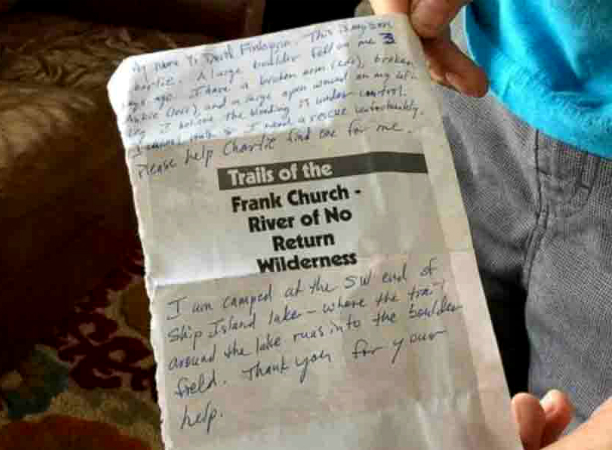 My name is David Finlayson. This is my son
Charlie. A large boulder fell on me 3
days ago. I have a broken arm (left), broken
ankle (left), and a large open wound on my left
leg. I believe the bleeding is under control.
I cannot walk so I need a rescue unfortunately.
Please help Charlie find one for me.
Trails of the
Frank Church -
River of No
Return
Wilderness
I am camped at the SW end of
Ship Island lake - where the trail
around the lake runs into the boulder
field. Thank you for your
help.